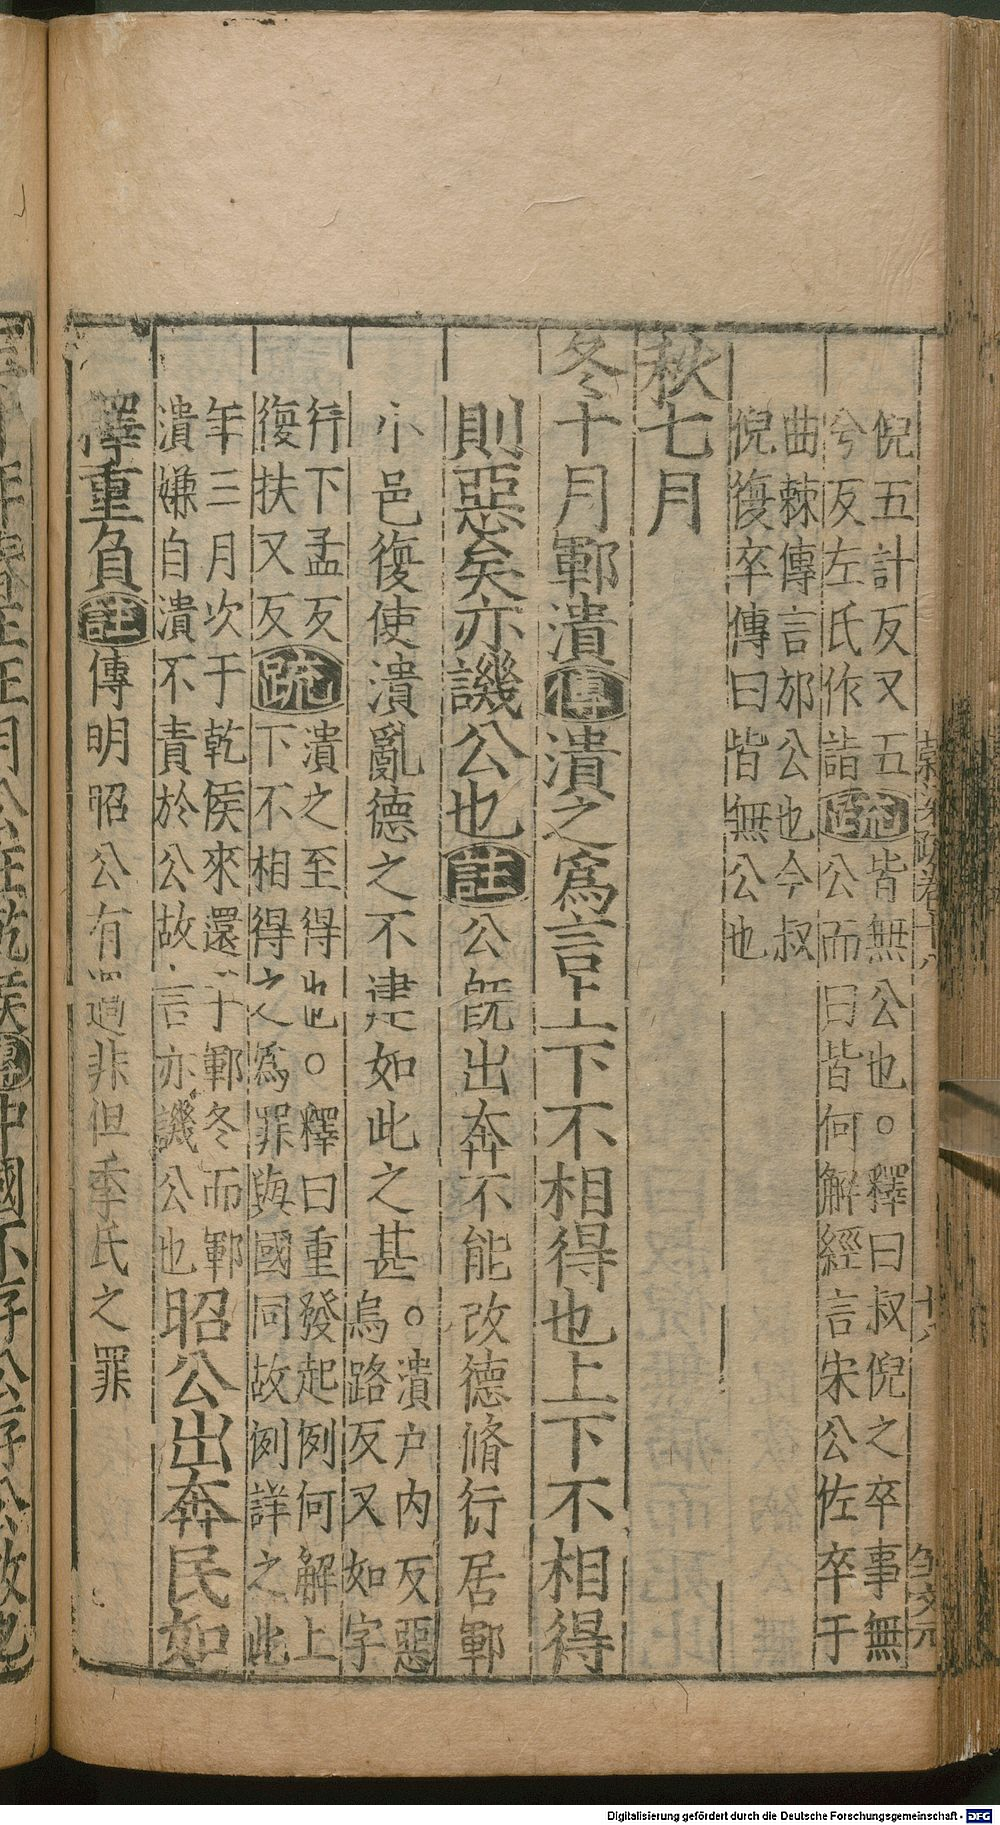 倪五計反又五
兮反左氏作詣疏
皆無公也○釋曰叔倪之卒事無
公而曰皆何解經言宋公佐卒于
曲棘傳言邡公也今叔
倪復卒傳曰皆無公也
秋七月
冬十月鄆潰傳潰之爲言上下不相得也上下不相得
則惡矣亦譏公也註公旣出奔不能改德脩行居鄆
小邑復使潰亂德之不建如此之甚○潰户内反惡
烏路反又如字
行下孟反
復扶又反疏
潰之至得也○釋曰重發起例何解上
下不相得之爲罪與國同故例詳之此
年三月次于乾侯來還于鄆冬而鄆
潰嫌自潰不責於公故言亦譏公也
昭公出奔民如
釋重負註傳明昭公有過非但季氏之罪
穀梁疏卷十八
十八
Digitalisierung gefördert durch die Deutsche Forschungsgemeinschaft - DFG